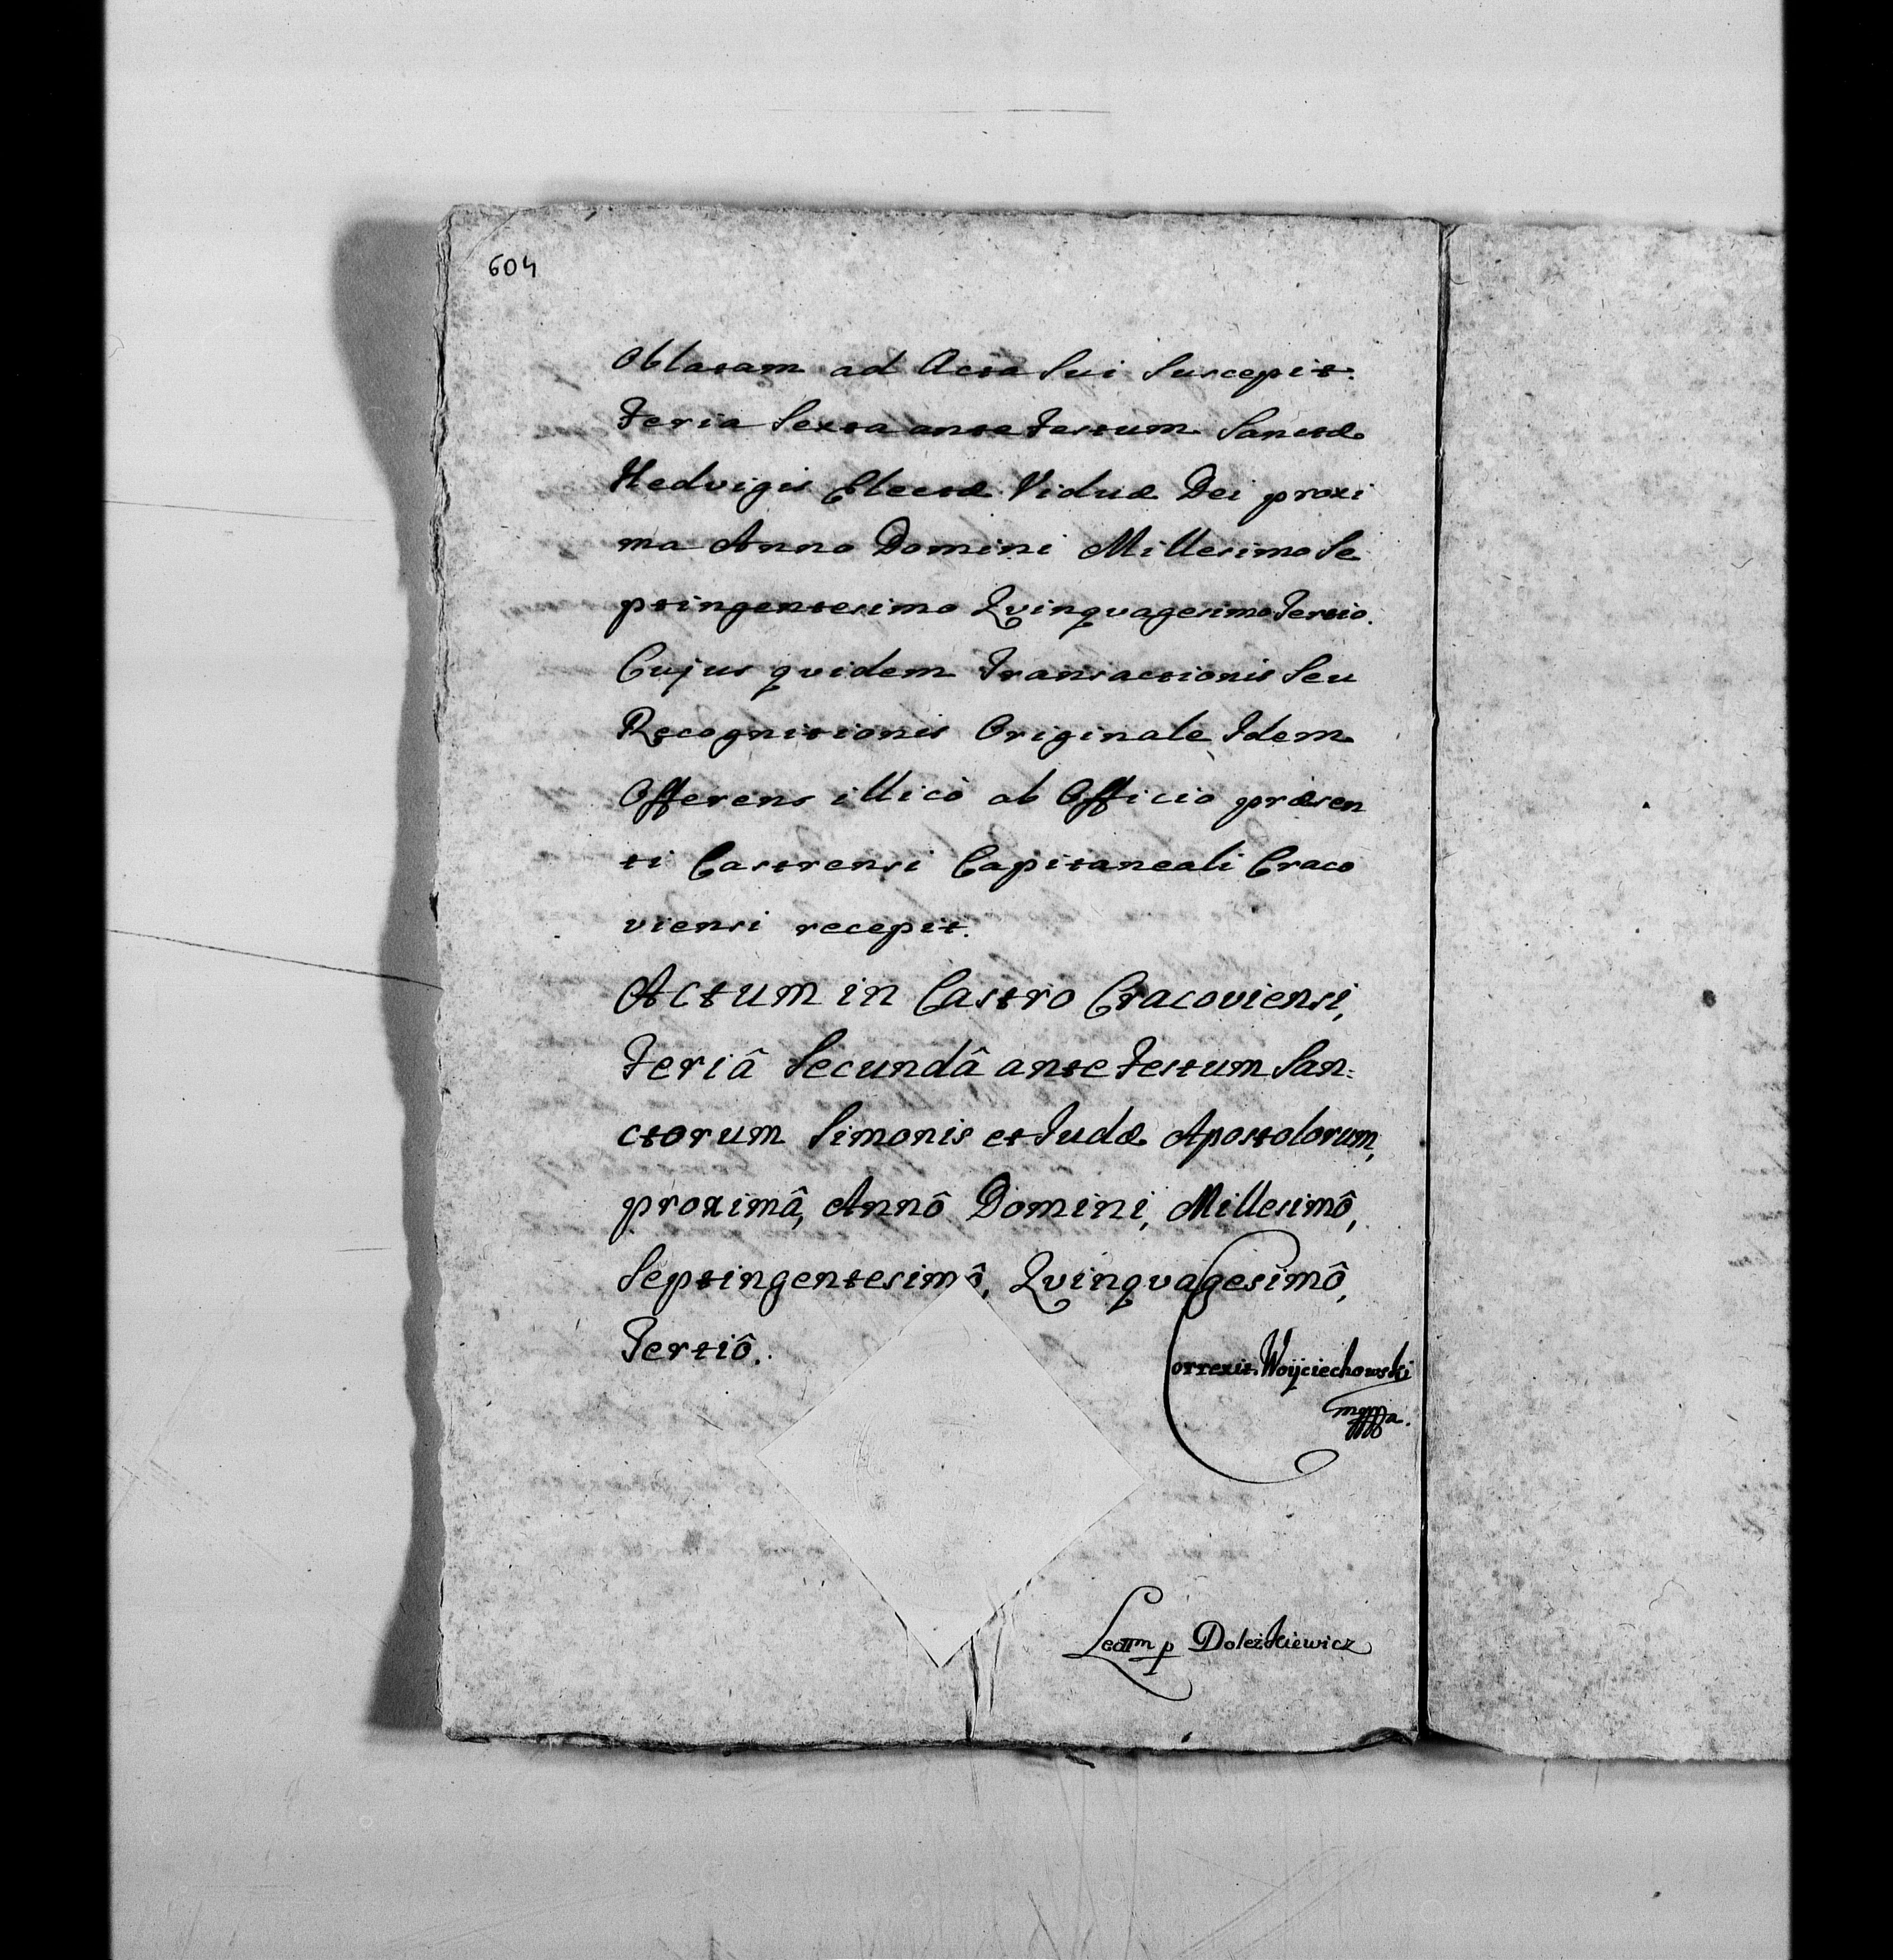 604
Oblatam ad Acta Sui Suscepit.
Feria Sexta ante Festum Sanctæ
Hedvigis Electæ Viduæ Dei proxi
ma Anno Domini Millesimo Se
ptingentesimo Qvinqvagesimo Tertio.
Cujus qvidem Transactionis Seu
Recognitionis Originale Idem
Offerens illicò ab Officio præsen
ti Castrensi Capitaneali Craco
viensi recepit.
Actum in Castro Cracoviensi,
Feriâ Secundâ ante Festum San:
ctorum Simonis et Judæ Apostolorum,
proximâ, Annô Domini, Millesimô,
Septingentesimô, Qvinqvagesimô,
Tertiô.
Correxit Woyciechowski
mppa.
Lectm p Doleżkiewicz